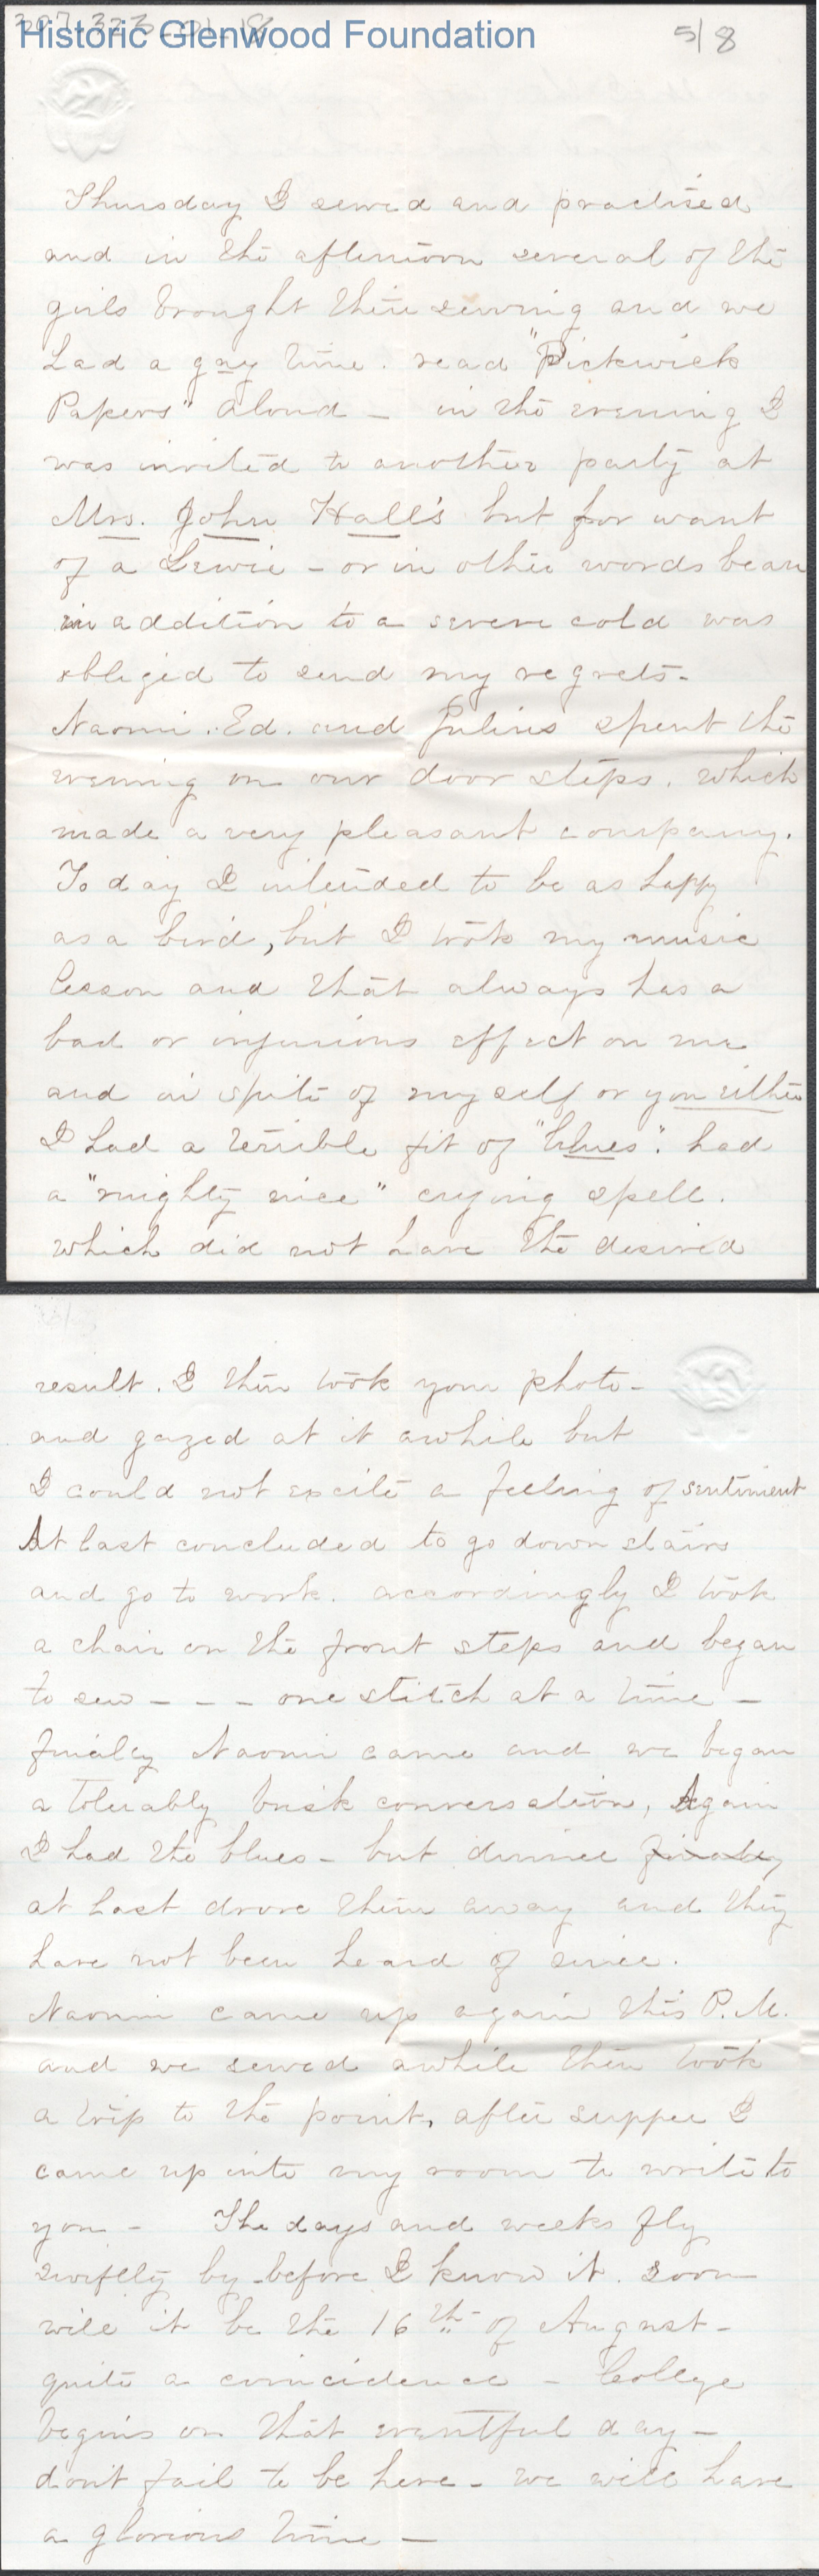 307.323_01_18
Historic Glenwood Foundation
5/8
Thursday I sewed and practised
and in the afternoon several of the
girls brought their sewing and we
had a gay time. read "Pickwick
Papers" aloud - in the evening I
was invited to another party at
Mrs. John Hall's but for want
of a Lewie - or in other words beau
in addition to a severe cold was
obliged to send my regrets-
Naomi. Ed. and Julius spent the
evening on our door steps. which
made a very pleasant company.
To day I intended to be as happy
as a bird, but I took my music
lesson and that always has a
bad or injurious effect on me
and in spite of myself or you either
I had a terrible fit of "blues". had
a "mighty nice" crying spell.
which did not have the desired
result. I then took your photo-
and gazed at it awhile but
I could not excite a feeling of sentiment
At last concluded to go down stairs
and go to work. accordingly I took
a chair on the front steps and began
to sew - - - one stitch at a time -
finally Naomi came and we began
a tolerably brisk conversation, Again
I had the blues - but dinner finally
at last drove them away and they
have not been heard of since.
Naomi came up again this P.M.
and we sewed awhile then took
a trip to the point, after supper I
came up into my room to write to
you - The days and weeks fly
swiftly by - before I know it. soon
will it be the 16th of August -
quite a coincidence - College
begins on that eventful day -
don't fail to be here - we will have
a glorious time -